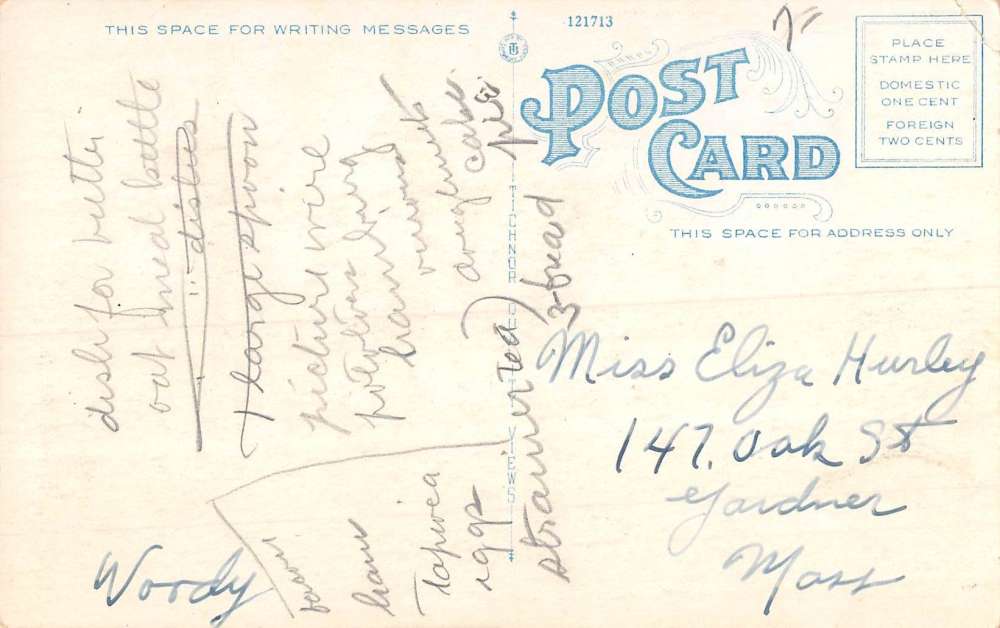 THIS SPACE FOR WRITING MESSAGES
121713
POST
CARD
PLACE
STAMP HERE
DOMESTIC
ONE CENT
FOREIGN
TWO CENTS
THIS SPACE FOR ADDRESS ONLY
dish for butter
out meal bottle
11 dishes
1 large spoon
picture wire
potatoes
ham
doughnuts
cake
pie
3-bread
bacon
ham
Tapioca
eggs
strawberries
TICHNOR QUALITY VIEWS
Miss Eliza Hurley
147. Oak St
Gardner
Mass
Woody